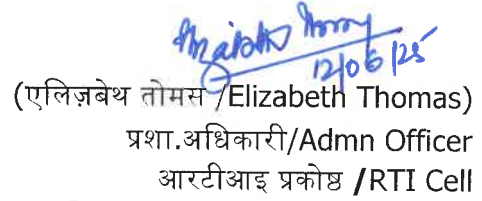 12/06/25
(एलिज़बेथ तोमस /Elizabeth Thomas)
प्रशा.अधिकारी/Admn Officer
आरटीआइ प्रकोष्ठ /RTI Cell